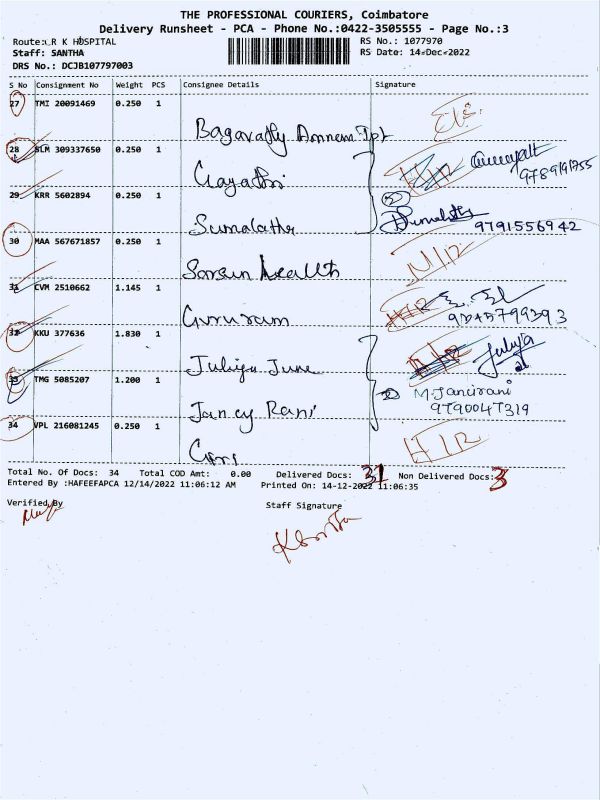 THE PROFESSIONAL COURIERS, Coimbatore
Delivery Runsheet - PCA - Phone No.:0422-3505555 - Page No.:3
Route: R K HOSPITAL
RS No.: 1077970
Staff: SANTHA
RS Date: 14-Dec-2022
DRS No.: DCJB107797003
S No Consignment No Weight PCS Consignee Details Signature
27 TMI 20091469 0.250 1
Bagavathy Annem Tpt
28 SLM 309337650 0.250 1
Gayathri
9789191755
29 KRR 5602894 0.250 1
Sumalatha
9791556942
30 MAA 567671857 0.250 1
Health
31 CVM 2510662 1.145 1
Gururam
32 KKU 377636 1.830 1
Juliya June
Juliya
33 TMG 5085207 1.200 1
Jancy Rani
M. Jancirani
9790047319
34 VPL 216081245 0.250 1
Total No. Of Docs: 34 Total COD Amt: 0.00 Delivered Docs: 31 Non Delivered Docs: 3
Entered By :HAFEEFAPCA 12/14/2022 11:06:12 AM Printed On: 14-12-2022 11:06:35
Verified By
Staff Signature